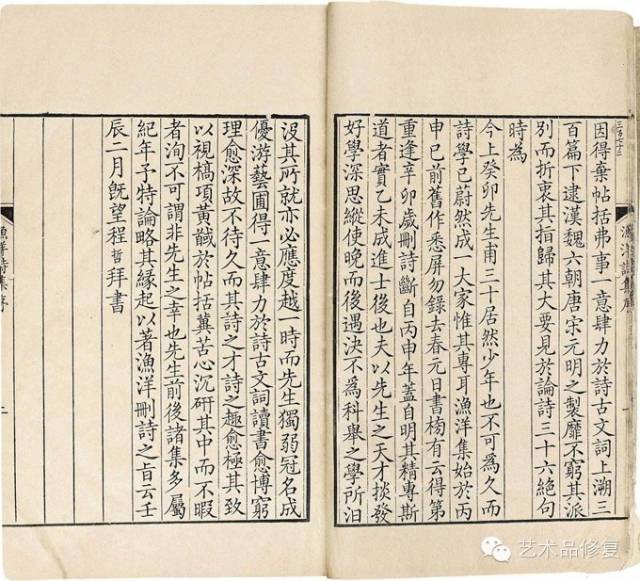 因得棄帖括弗事一意肆力於詩古文詞上溯三
百篇下逮漢魏六朝唐宋元明之製靡不窮其派
別而折衷其指歸其大要見於論詩三十六絕句
時為
今上癸卯先生甫三十居然少年也不可為久而
詩學已蔚然成一大家惟其專耳漁洋集始於丙
申已前舊作悉屏勿錄去春元日書楊有云得第
重逢辛卯歲刪詩斷自丙申年蓋自明其精專斯
道者實乙未成進士後也夫以先生之天才掞發
好學深思縱使晚而後遇決不為科舉之學所汩
漁洋詩集序
沒其所就亦必應度越一時而先生獨弱冠名成
優游藝圃得一意肆力於詩古文詞讀書愈博窮
理愈深故不待久而其詩之才詩之趣愈極其致
以視槁項黃馘於帖括冀苦心沉研其中而不暇
者洵不可謂非先生之幸也先生前後諸集多屬
紀年予特論略其緣起以著漁洋刪詩之旨云壬
辰二月既望程哲拜書
漁洋詩集序
二
艺术品修复